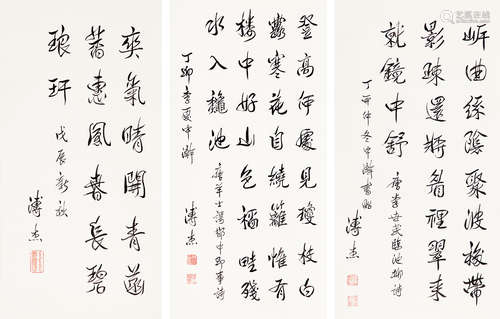 岸曲絲陰聚波移帶
影疎還將眉裡翠來
就鏡中舒
丁卯仲冬中澣書
唐李世民臨池柳詩
溥杰
登高何處見瓊枝白
露寒花自繞籬惟有
樓中好山色稻畦殘
水入龝池
唐羊士諤郡中即事詩
丁卯季夏中澣
溥杰
爽氣晴開青菡
萏惠風春長碧
琅玕
戊辰新秋
溥杰